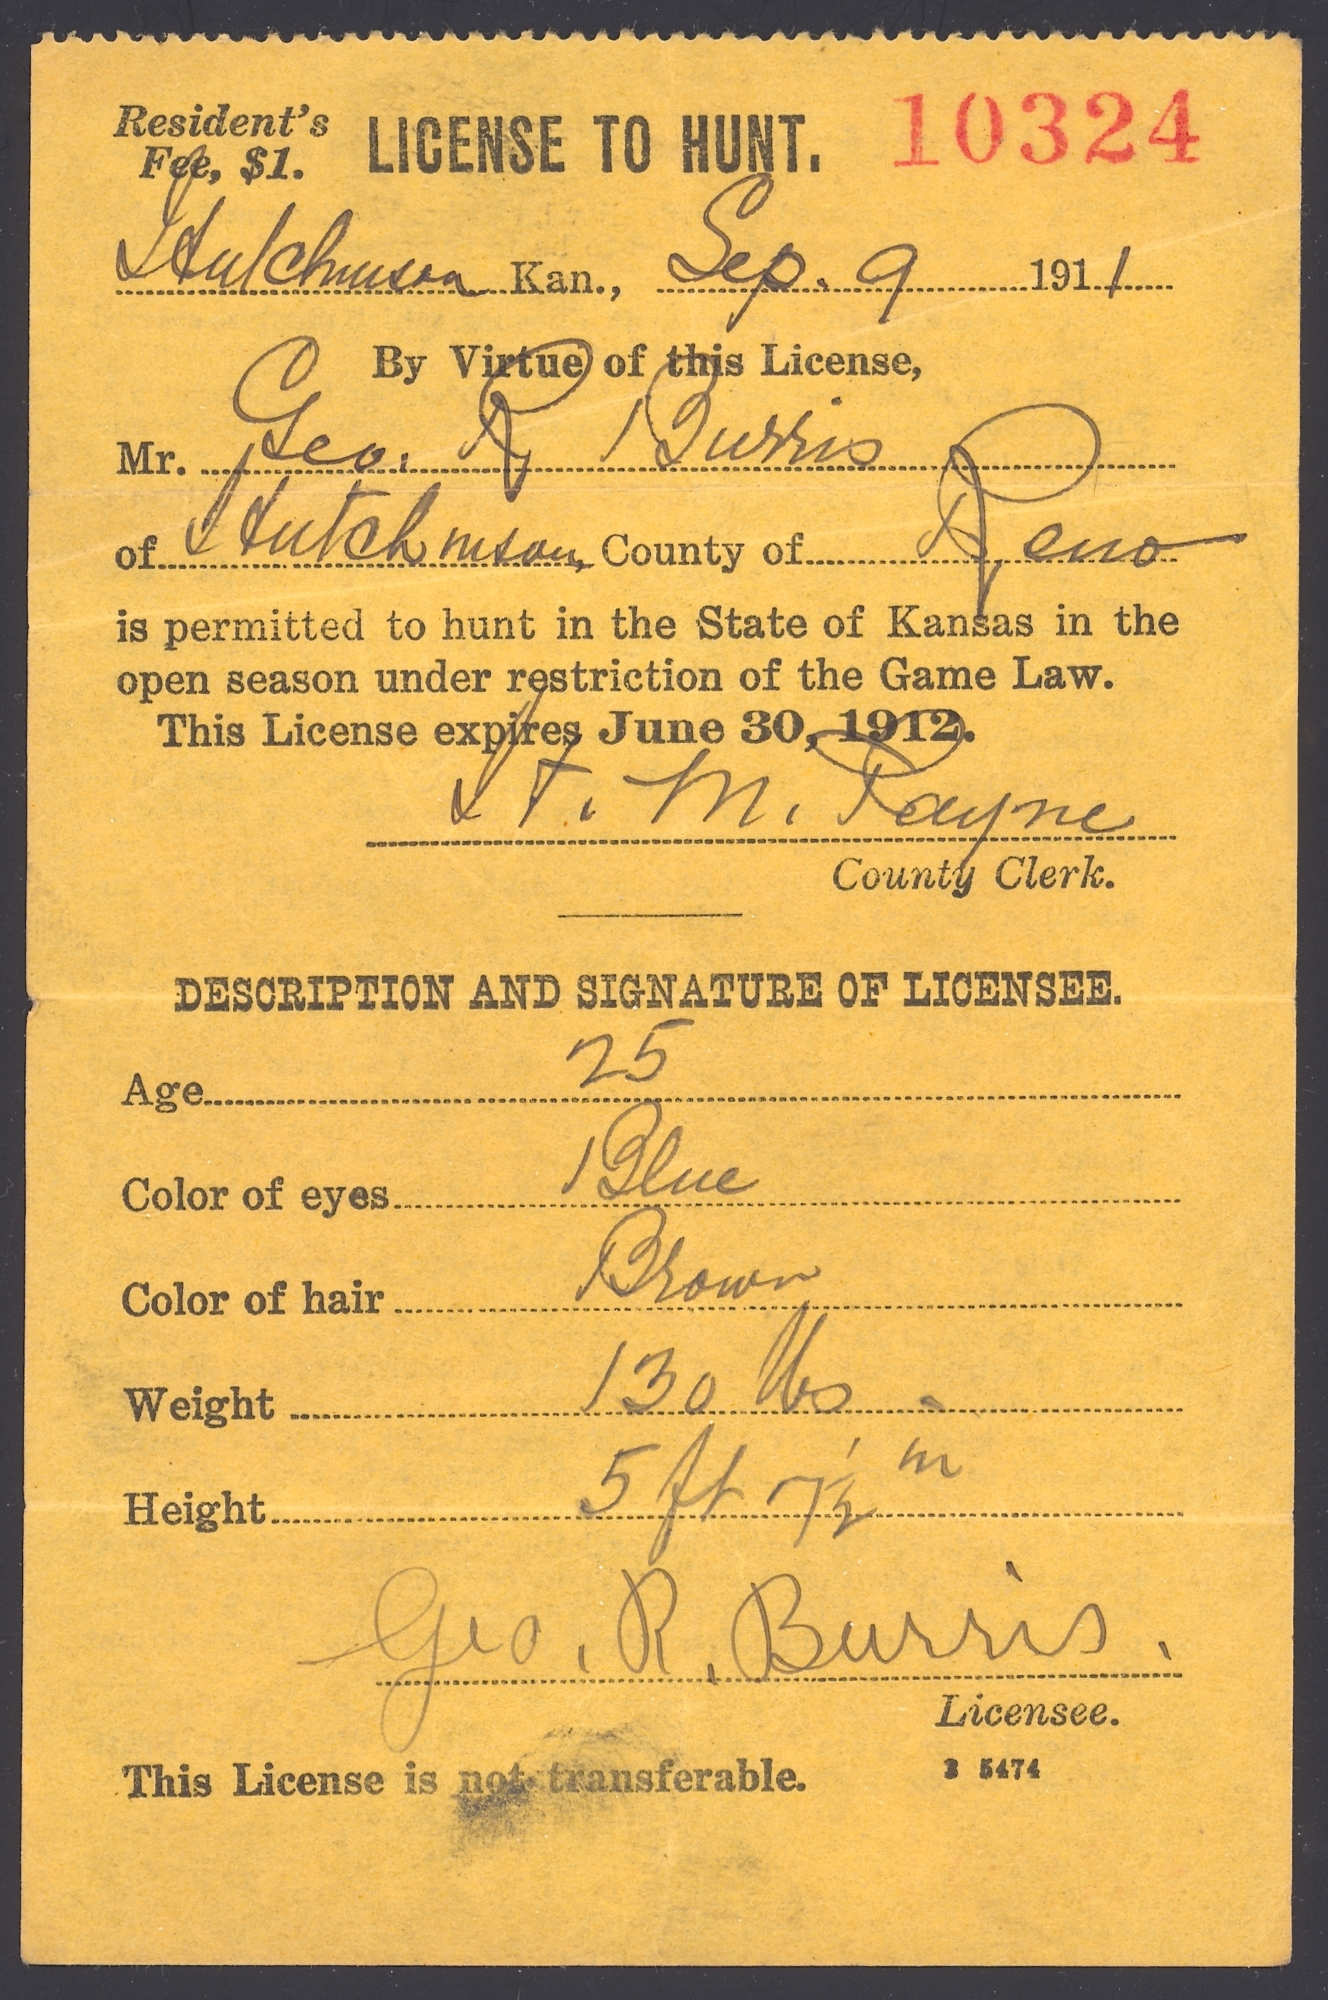 Resident's LICENSE TO HUNT. 10324
Fee, $1.
Hutchinson Kan., Sep. 9 1911
By Virtue of this License,
Mr. Geo. R Burris
of Hutchinson, County of Reno
is permitted to hunt in the State of Kansas in the
open season under restriction of the Game Law.
This License expires June 30, 1912.
H. M. Payne
County Clerk.
DESCRIPTION AND SIGNATURE OF LICENSEE.
Age 25
Color of eyes Blue
Color of hair Brown
Weight 130 lbs
Height 5 ft 7½ in
Geo. R. Burris.
Licensee.
This License is not transferable. 3 5474